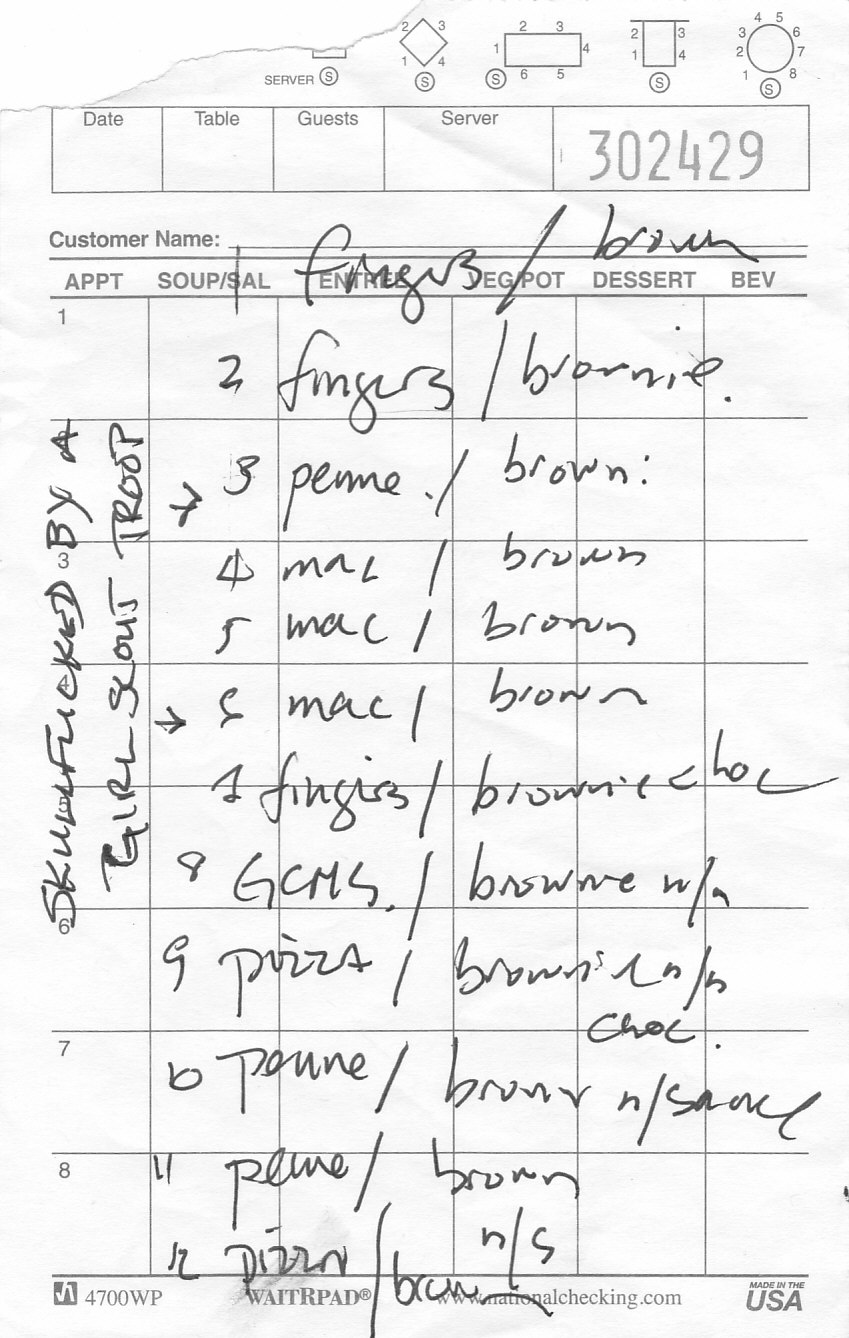 2 3 1 4
2 3 1 4 6 5
2 3 1 4
4 5 3 6 2 7 1 8
SERVER S S S S S
Date Table Guests Server 302429
Customer Name:
1 fingers / brown
APPT SOUP/SAL ENTREE VEG/POT DESSERT BEV
1
2 fingers / brownie.
3 penne. / brown:
3
4 mac / brown
5 mac / brown
4
6 mac / brown
5
7 fingers / brownie choc
8 GCMS. / brownie n/n
6
9 pizza / brownie n/n
choc.
7
10 penne / brown n/sauce
8
11 penne / brown
n/S
12 pizza / brown
SKULLFUCKED BY A
GIRL SCOUT TROOP
4700WP WAITRPAD® www.nationalchecking.com MADE IN THE USA